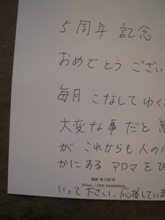 5周年 記念
おめでとう ござい
毎月 こなしてゆく
大変な事だと思
が これからも 人の
かにある アロマを ひ
いって下さい。応援していま